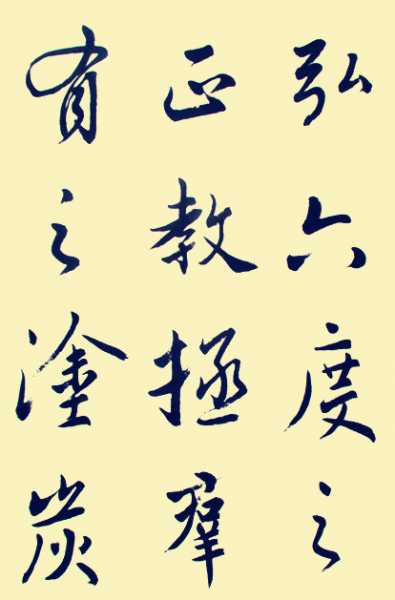 弘六度之
正教拯羣
有之塗炭